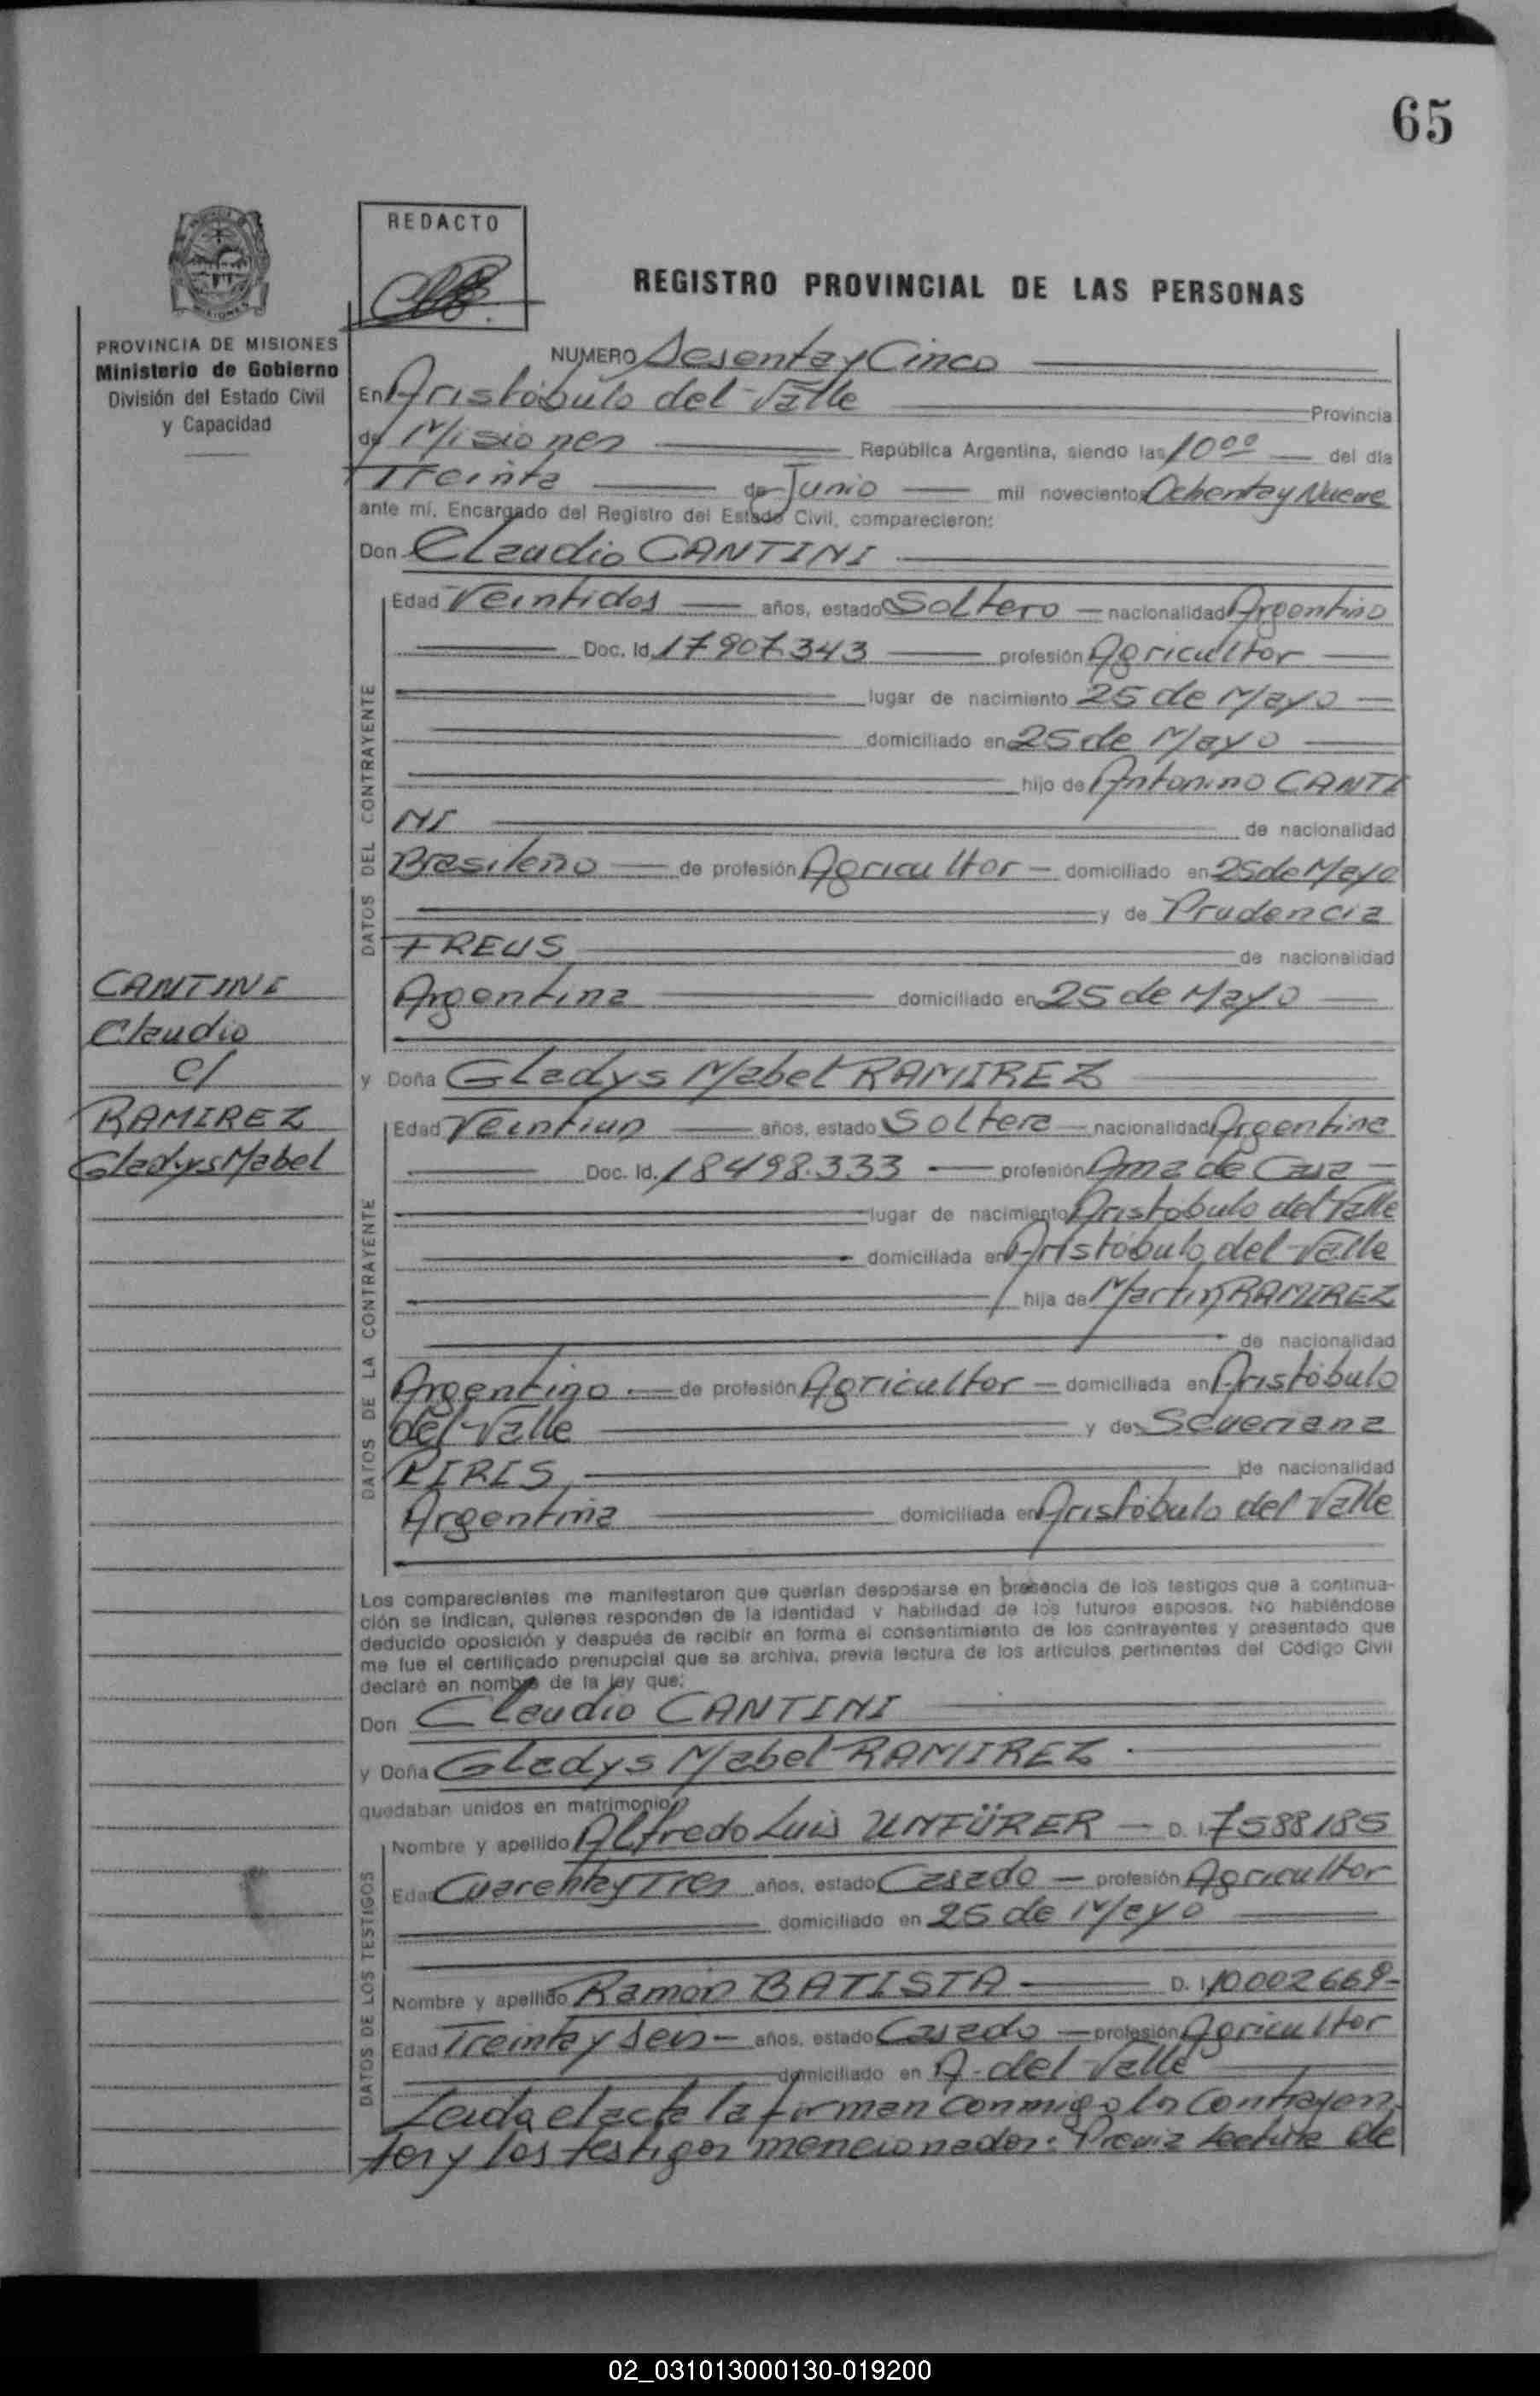 65
REDACTO
REGISTRO PROVINCIAL DE LAS PERSONAS
PROVINCIA DE MISIONES
Ministerio de Gobierno
División del Estado Civil
y Capacidad
CANTINI
Claudio
c/
RAMIREZ
Gladys Mabel
NUMERO Sesenta y Cinco
En Aristóbulo del Valle Provincia
de Misiones República Argentina, siendo las 10 00 del día
Treinta de Junio mil novecientos Ochenta y Nueve
ante mí, Encargado del Registro del Estado Civil, comparecieron:
Don Claudio CANTINI
DATOS DEL CONTRAYENTE
Edad Veintidos años, estado Soltero nacionalidad Argentino
Doc. Id. 17907.343 profesión Agricultor
lugar de nacimiento 25 de Mayo
domiciliado en 25 de Mayo
hijo de Antonino CANTI
NI de nacionalidad
Brasileño de profesión Agricultor domiciliado en 25 de Mayo
y de Prudencia
FREUS de nacionalidad
Argentina domiciliado en 25 de Mayo
y Doña Gladys Mabel RAMIREZ
DATOS DE LA CONTRAYENTE
Edad Veintiun años, estado Soltera nacionalidad Argentina
Doc. Id. 18498.333 profesión Ama de Casa
lugar de nacimiento Aristobulo del Valle
domiciliada en Aristóbulo del Valle
hija de Martin RAMIREZ
de nacionalidad
Argentino de profesión Agricultor domiciliada en Aristóbulo
del Valle y de Severiana
PIRIS de nacionalidad
Argentina domiciliada en Aristóbulo del Valle
Los comparecientes me manifestaron que querían desposarse en presencia de los testigos que a continua-
ción se indican, quienes responden de la identidad y habilidad de los futuros esposos. No habiéndose
deducido oposición y después de recibir en forma el consentimiento de los contrayentes y presentado que
me fue el certificado prenupcial que se archiva, previa lectura de los artículos pertinentes del Código Civil
declaré en nombre de la ley que:
Don Claudio CANTINI
y Doña Gladys Mabel RAMIREZ
quedaban unidos en matrimonio
DATOS DE LOS TESTIGOS
Nombre y apellido Alfredo Luis UNFÜRER D. I. 7588185
Edad Cuarenta y Tres años, estado Casado profesión Agricultor
domiciliado en 25 de Mayo
Nombre y apellido Ramón BATISTA D. I. 10002669-
Edad Treinta y Seis años, estado Casado profesión Agricultor
domiciliado en A. del Valle
Leida el acta la firman conmigo los Contrayen
tes y los testigos mencionados: Previa Lectura de
02_031013000130-019200